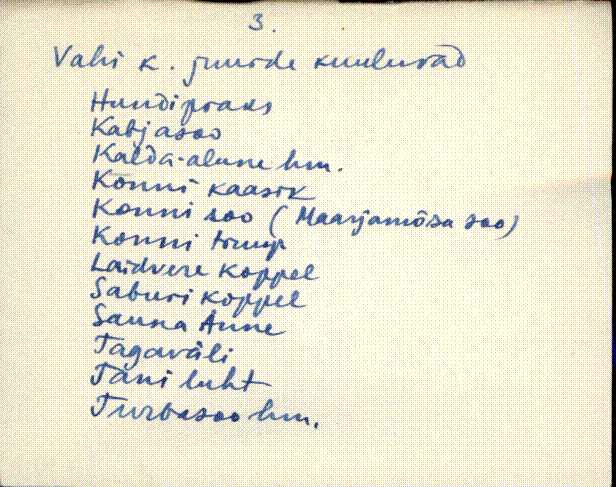 3.
Vahi k. juurde kuuluvad
Hundipraks
Kabjasoo
Kalda-alune hm.
Konni kaasik
Konni soo (Maarjamõisa soo)
Konni tomp
Laidvere koppel
Saburi koppel
Sauna Anne
Tagaväli
Tani luht
Turbasoo hm.